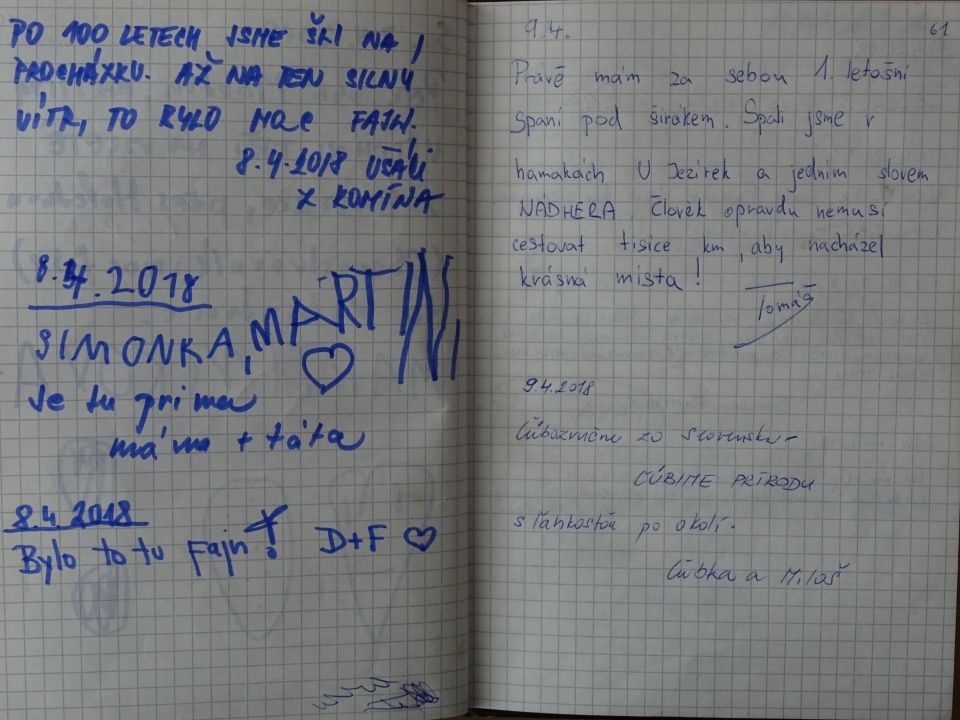 PO 100 LETECH JSME ŠLI NA
PROCHÁZKU. AŽ NA TEN SILNÝ
VÍTR, TO BYLO MOC FAJN.
8.4.2018 UŠÁLI
Z KOMÍNA
8.4.2018
SIMONKA, MARTIN,
Je tu prima
máma + táta
8.4.2018
Bylo to tu fajn! D+F ♡
9.4.
61
Právě mám za sebou 1. letošní
spaní pod širákem. Spali jsme v
hamakách U Jezírek a jedním slovem
NÁDHERA. Člověk opravdu nemusí
cestovat tisíce km, aby nacházel
krásná místa!
Tomáš
9.4.2018
zo Slovenska -
ĽÚBIME PRÍRODU
s ľahkosťou po okolí.
Ľúbka a Miloš